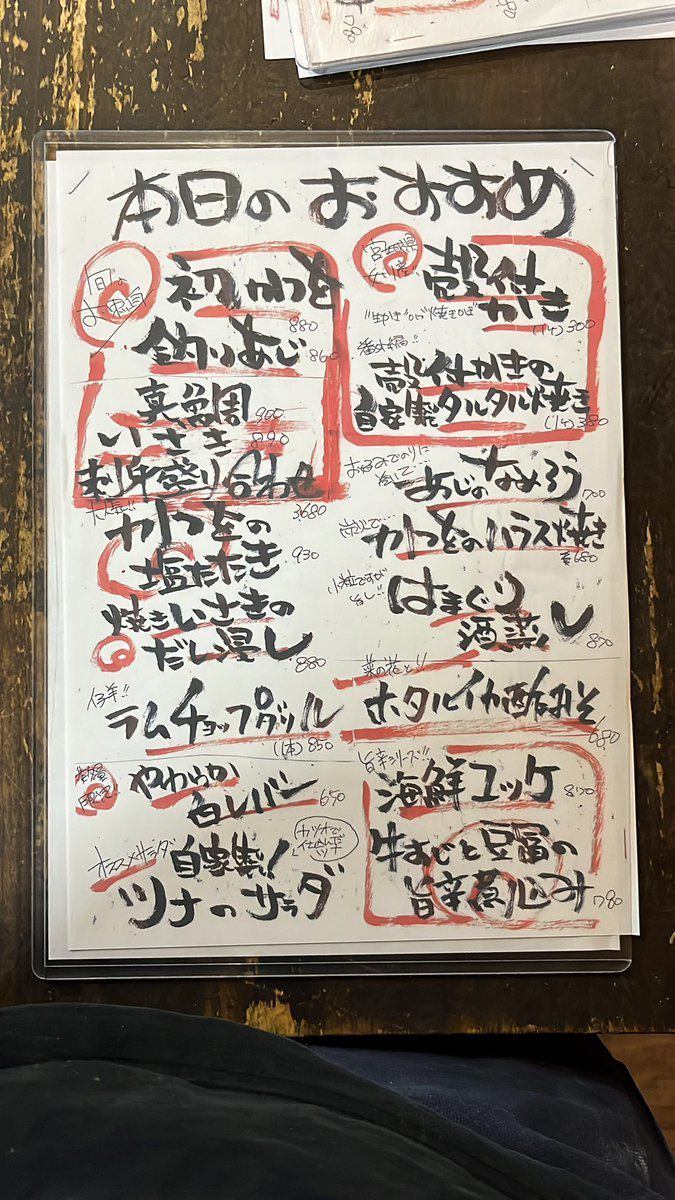 本日のおすすめ
旬の
お刺身
初がつを
880
釣りあじ
860
真鯛
900
いさき
890
刺身盛り合わせ
3,680
かつをの
塩たたき
930
焼きいさきの
だし浸し
880
仔羊!!
ラムチョップグリル
(1本)850
数量
限定!!
やわらか
白レバー
650
オススメサラダ
自家製!
ツナのサラダ
カツオで
仕込んだ
ツナ
宮城県
女川産!!
殻付
かき
"生かき"or"焼きかき"
(1ヶ)300
番外編!!
殻付かきの
自家製タルタル焼き
(1ヶ)380
お好みでのりに
巻いて…
あじのなめろう
700
かつをのハラス焼き
680
小粒ですが
旨し!!
はまぐり
酒蒸し
菜の花と
ホタルイカ酢みそ
680
旨辛シリーズ!!
海鮮ユッケ
牛すじと豆腐の
旨辛煮込み
780